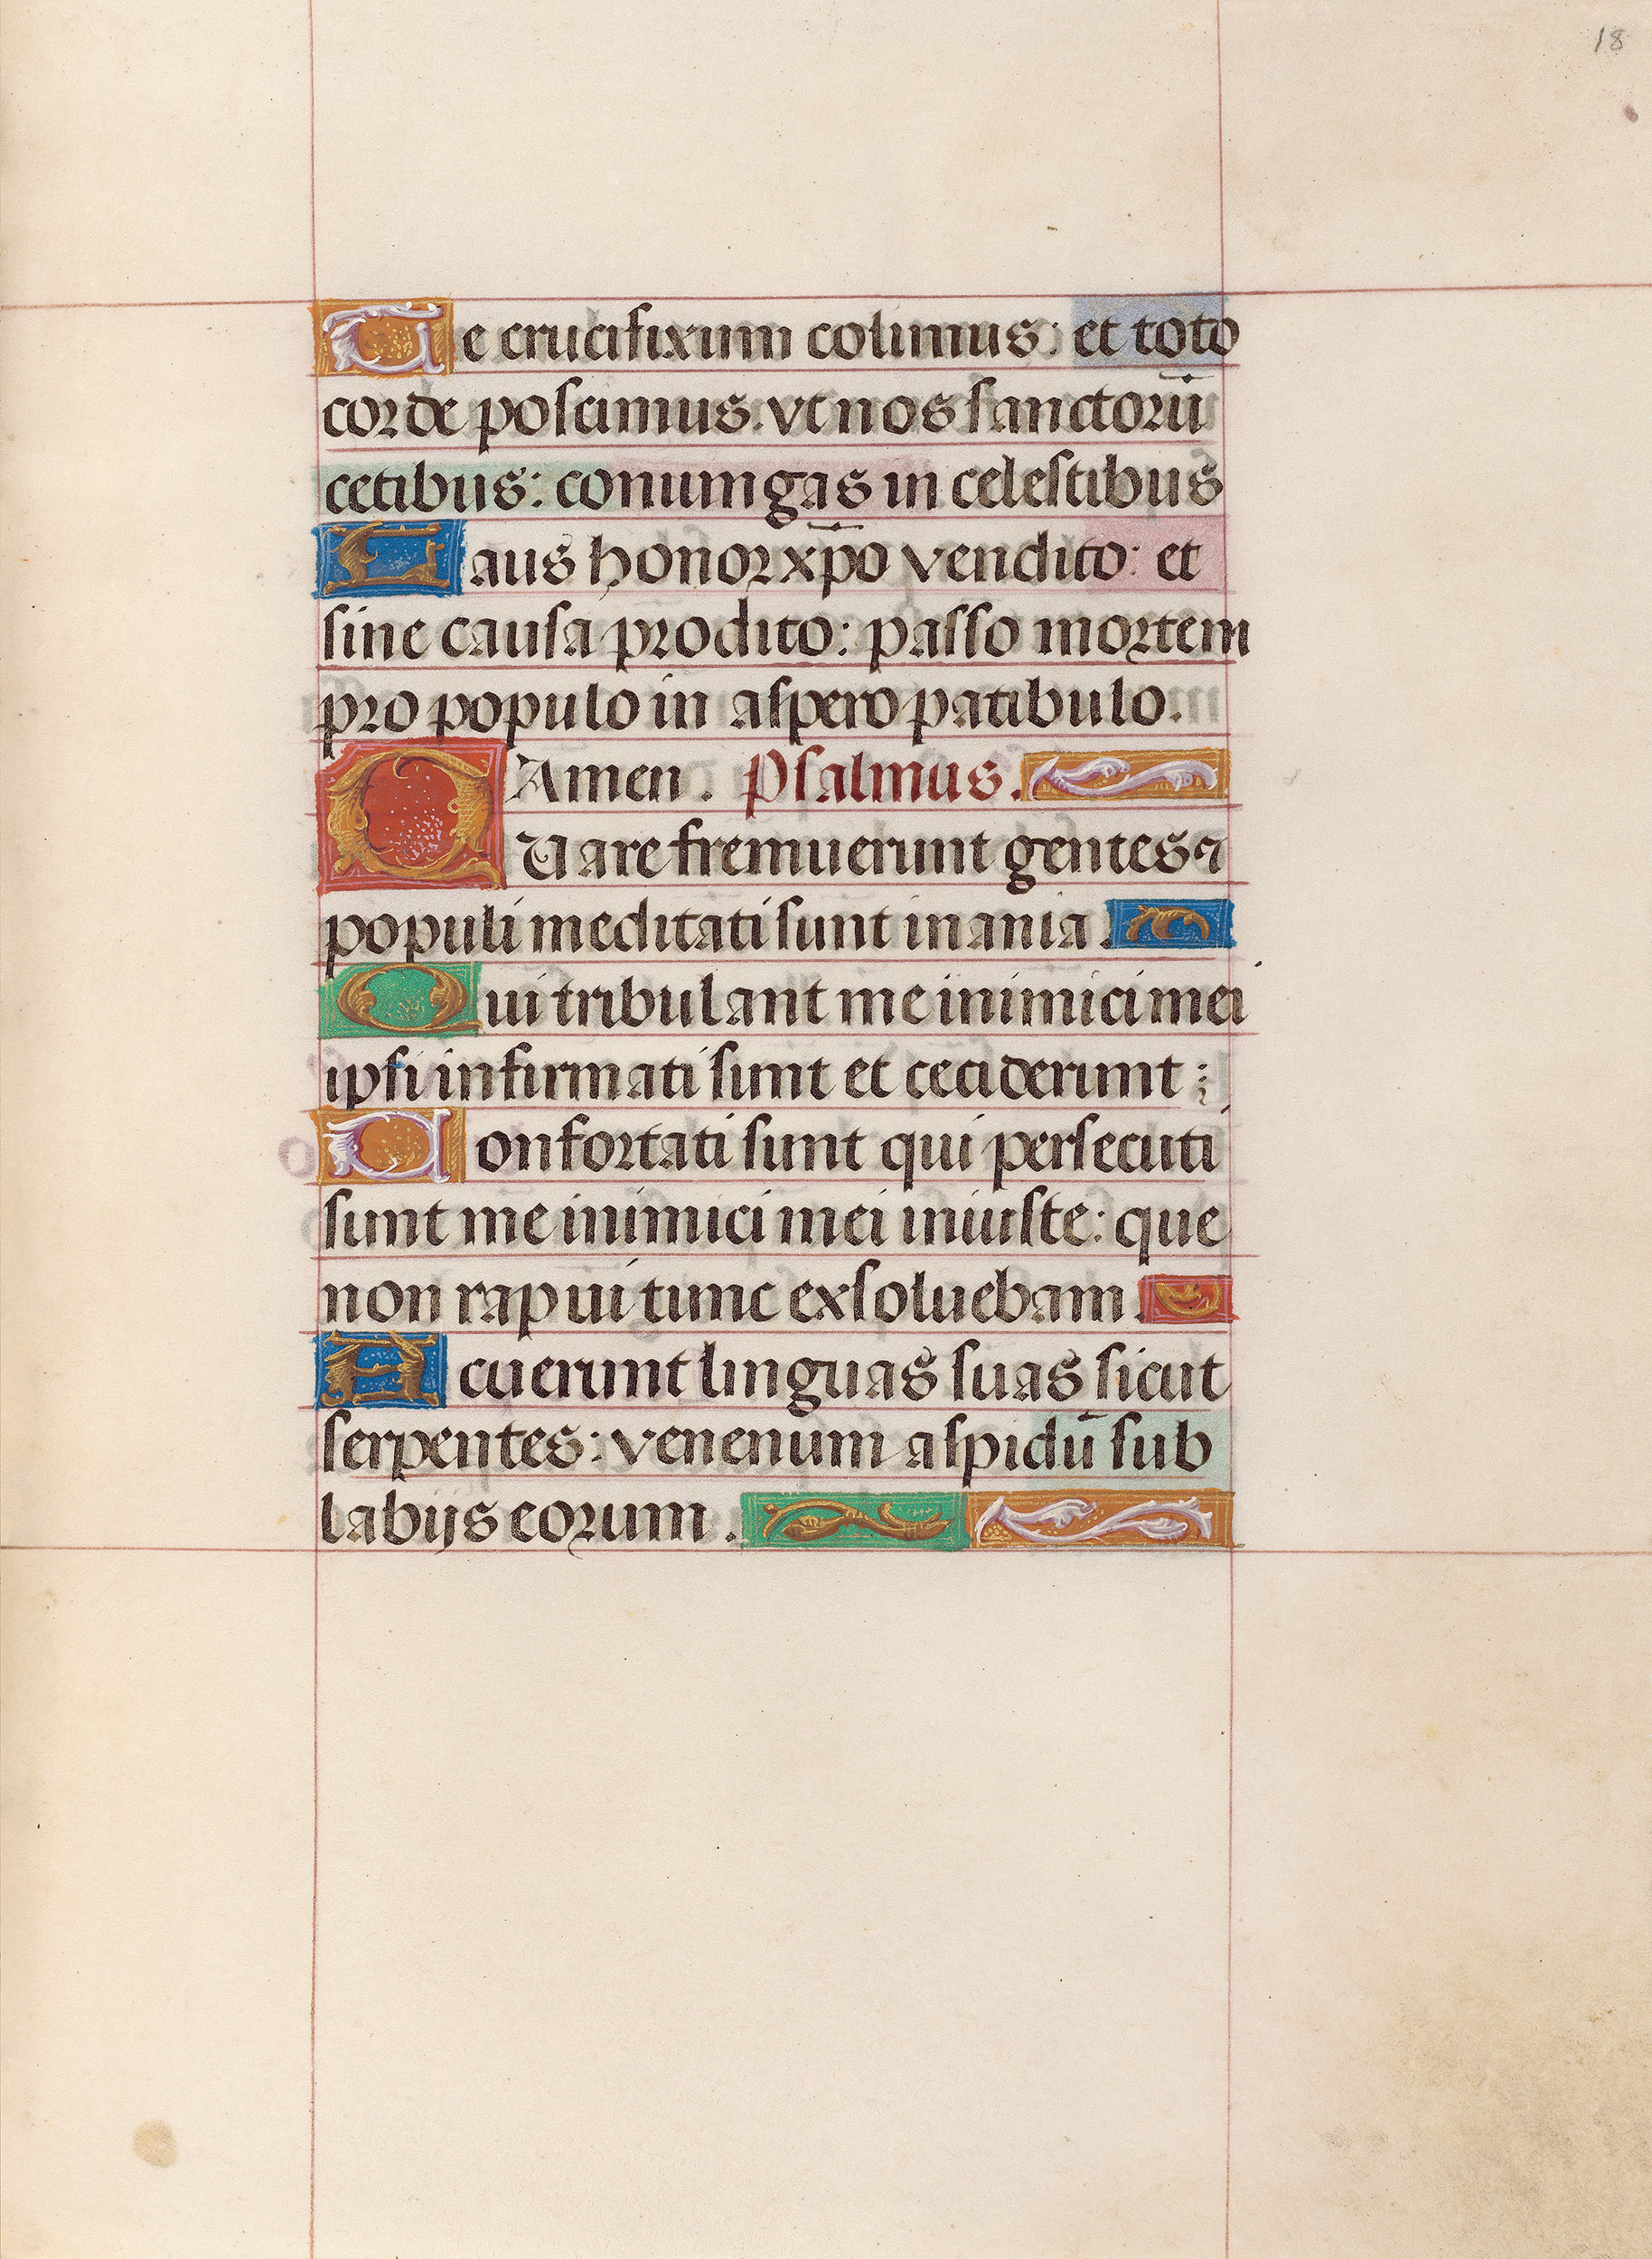 18
Te crucifixum colimus: et toto
corde poscimus. vt nos sanctorū
cetibus: coniungas in celestibus
Laus honor xp̄o vendito: et
sine causa prodito: passo mortem
pro populo in aspero patibulo.
Amen. Psalmus.
QUare fremuerunt gentes ⁊
populi meditati sunt inania.
Qui tribulant me inimici mei
ipsi infirmati sunt et ceciderunt:
Confortati sunt qui persecuti
sunt me inimici mei iniuste: que
non rapui tunc exsoluebam.
Acuerunt linguas suas sicut
serpentes: venenum aspidū sub
labijs eorum.